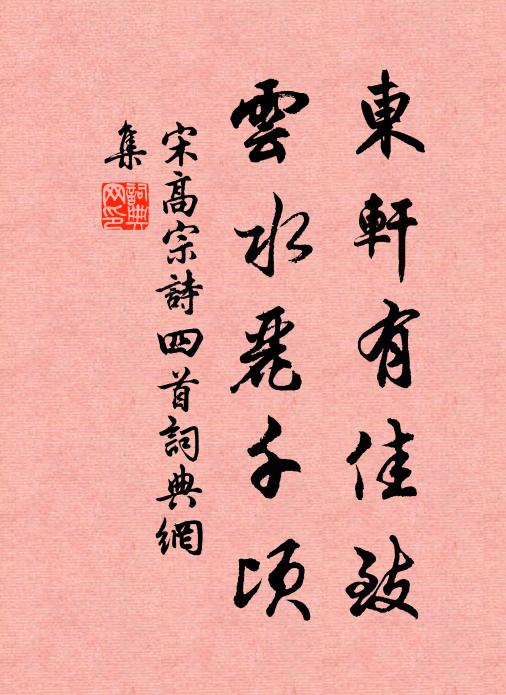 東軒有佳致
雲水麗千頃
宋高宗詩四首詞典網
集
詞典网印